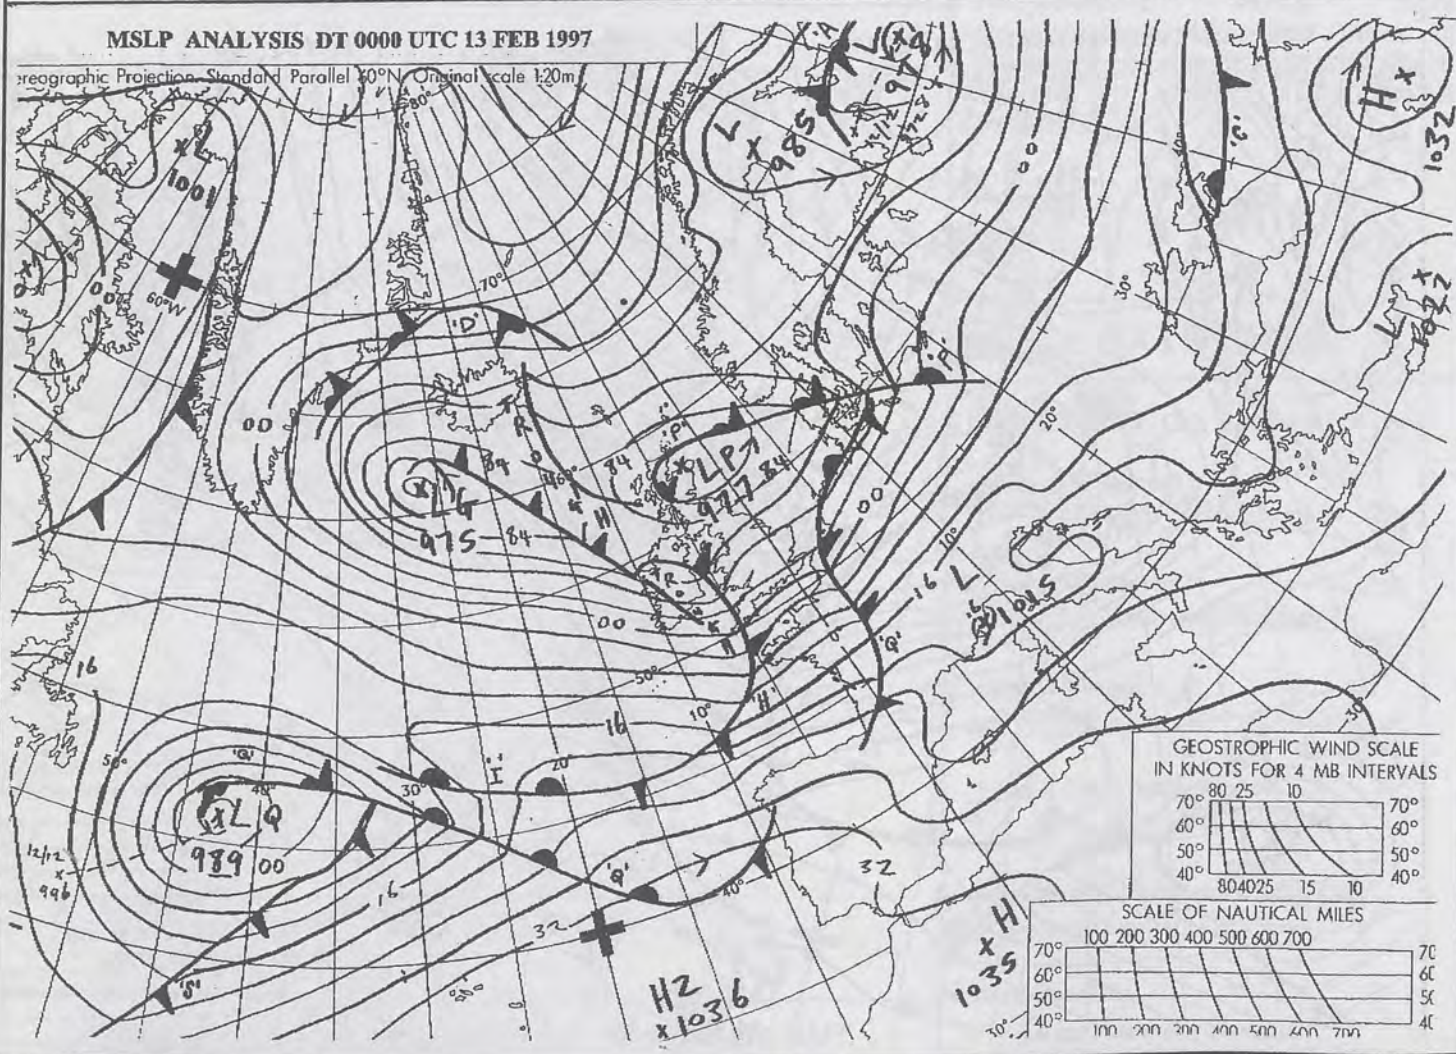 MSLP ANALYSIS DT 0000 UTC 13 FEB 1997
reographic Projection Standard Parallel 60°N Original scale 1:20m
80°
L
1001
60°W
00
70°
'D'
L
985
L
12/12
972
'C'
H
1032
30°
L
1022
00
00
TROUGH
84
84
'P'
LP
977
84
'P'
LG
975
84
'H'
20°
00
10°
16
L
1015
TROUGH
00
0°
'Q'
16
50°
10°
'H'
16
50°
'Q'
40°
30°
'I'
20°
LQ
989
00
12/12
x
996
16
'Q'
40°
32
32
'S'
H2
x1036
H
x
1035
30°
30°
GEOSTROPHIC WIND SCALE
IN KNOTS FOR 4 MB INTERVALS
80 25 10
70° 70°
60° 60°
50° 50°
40° 40°
80 40 25 15 10
SCALE OF NAUTICAL MILES
100 200 300 400 500 600 700
70° 70
60° 60
50° 50
40° 40
100 200 300 400 500 600 700